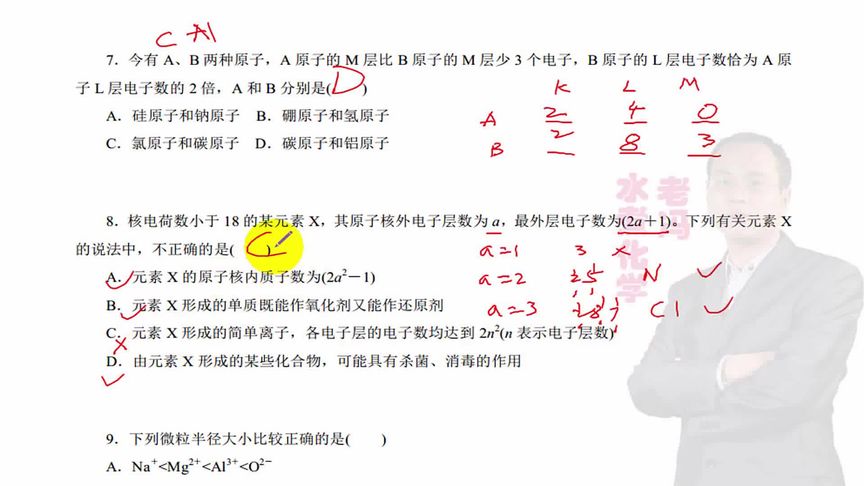 C Al
7．今有 A、B 两种原子，A 原子的 M 层比 B 原子的 M 层少 3 个电子，B 原子的 L 层电子数恰为 A 原
子 L 层电子数的 2 倍，A 和 B 分别是( D )
A．硅原子和钠原子 B．硼原子和氢原子
C．氯原子和碳原子 D．碳原子和铝原子
K L M
A 2 4 0
B 2 8 3
8．核电荷数小于 18 的某元素 X，其原子核外电子层数为 a，最外层电子数为(2a＋1)。下列有关元素 X
的说法中，不正确的是( C )
A．元素 X 的原子核内质子数为(2a²－1)
B．元素 X 形成的单质既能作氧化剂又能作还原剂
C．元素 X 形成的简单离子，各电子层的电子数均达到 2n²(n 表示电子层数)
D．由元素 X 形成的某些化合物，可能具有杀菌、消毒的作用
a=1 3 ×
a=2 2 5 N ✓
a=3 2 8 7 Cl ✓
老冯
水煮化学
9．下列微粒半径大小比较正确的是( )
A．Na⁺<Mg²⁺<Al³⁺<O²⁻